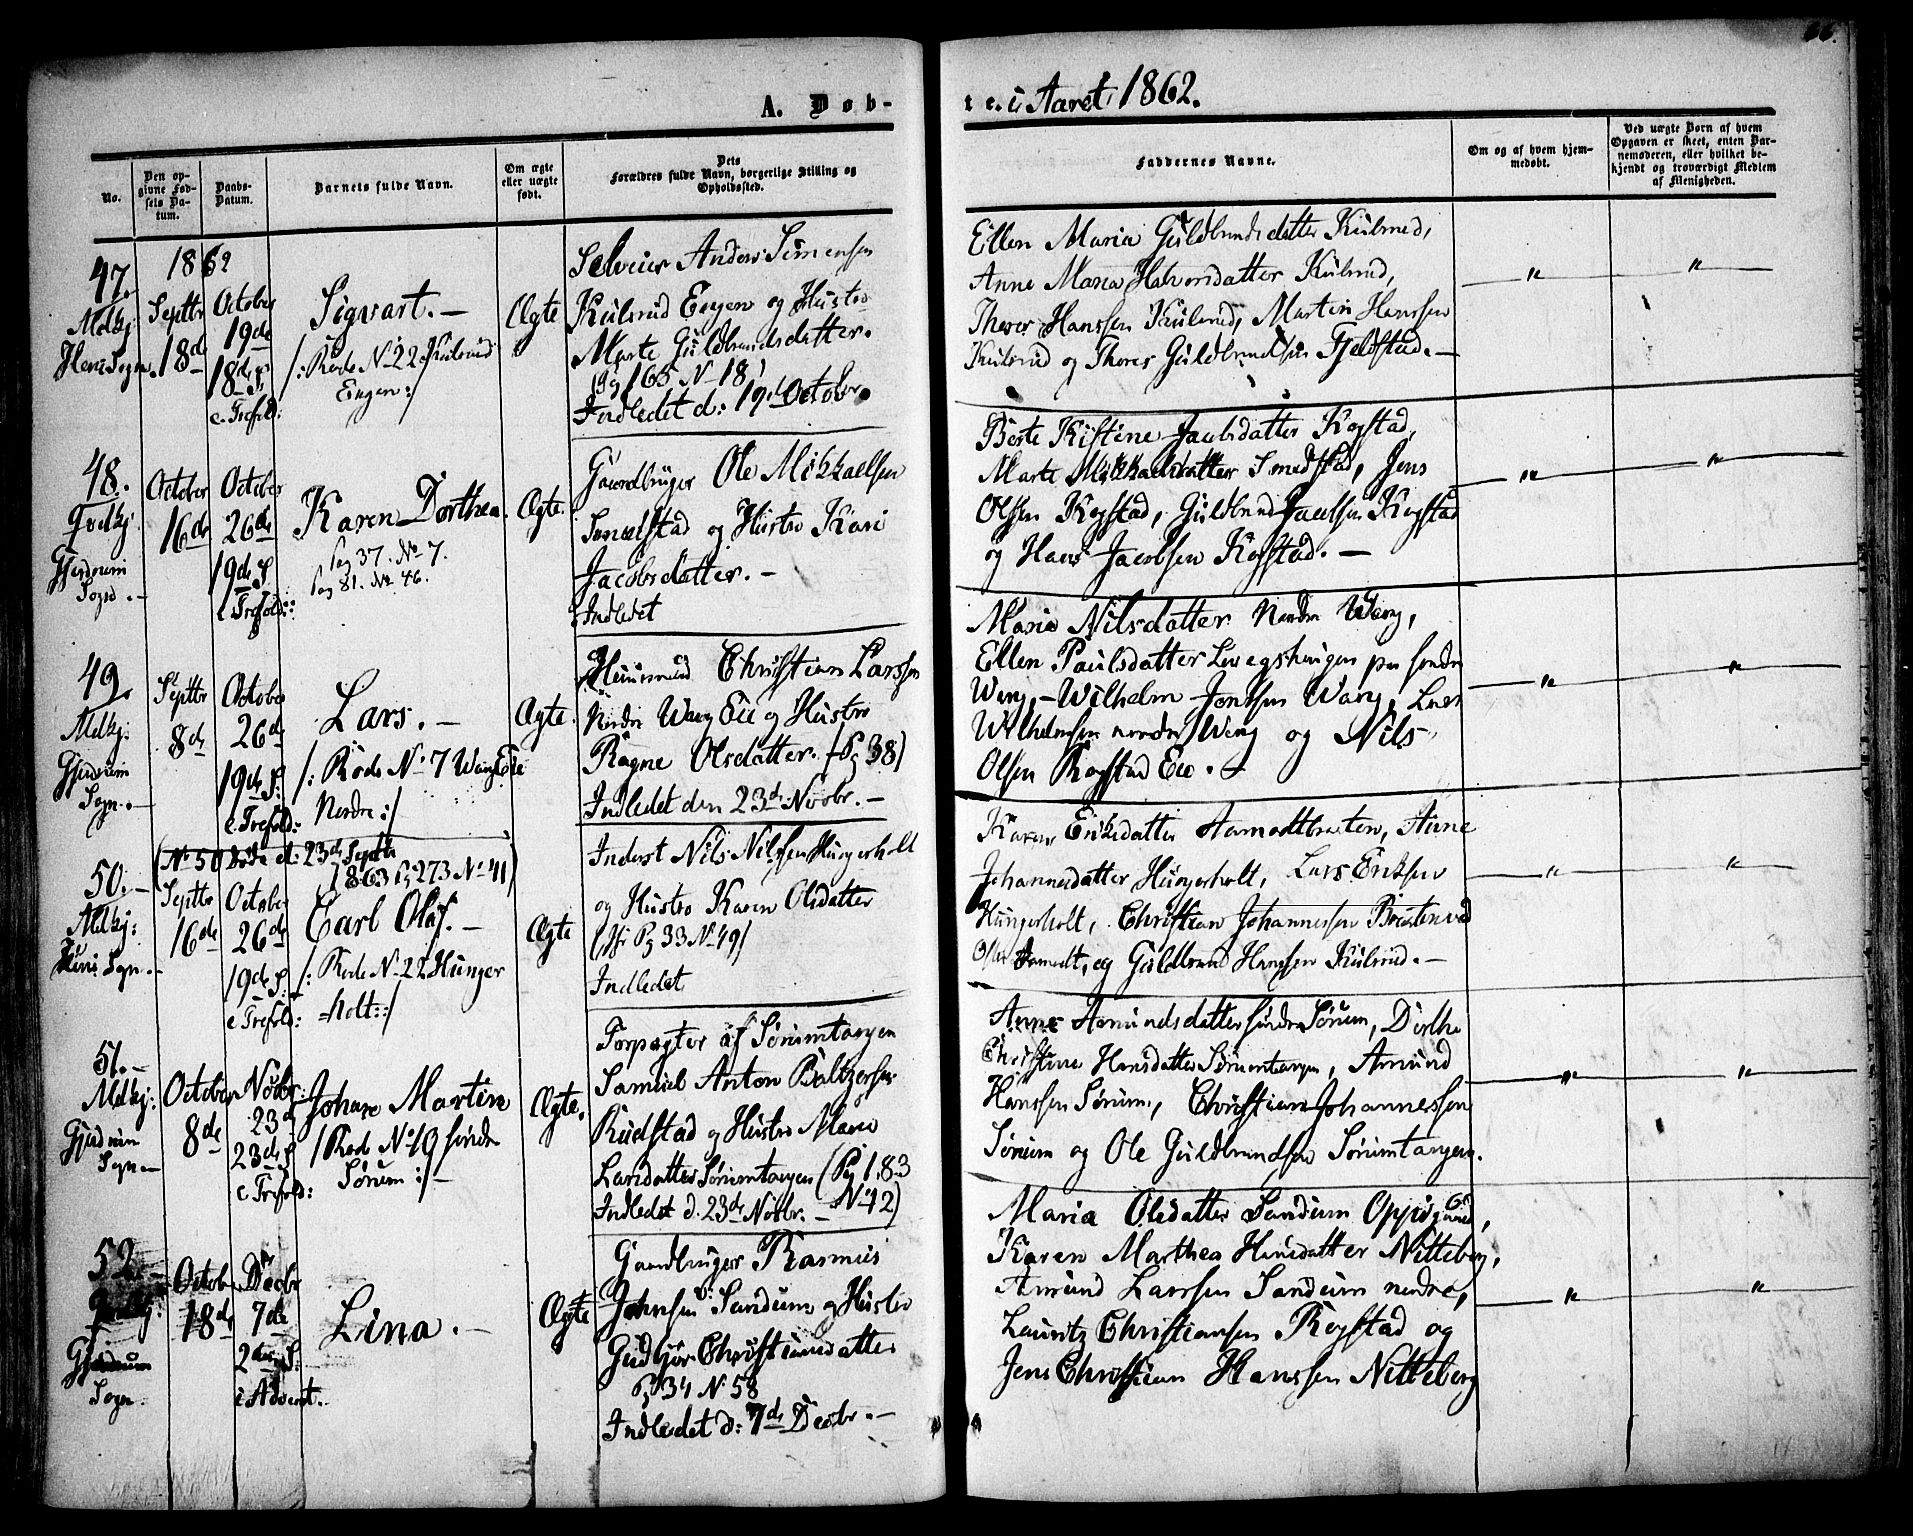 66.
A. Døb-
te. i Aaret 1862.
No.
Den op-
givne Fød-
sels Da-
tum.
Daabs-
Datum.
Barnets fulde Navn.
Om ægte
eller uægte
født.
Dets
Forældres fulde Navn, borgerlige Stilling og
Opholdssted.
Faddernes Navne.
Om og af hvem hjem-
medøbt.
Ved uægte Børn af hvem
Opgaven er skeet, enten Bar-
nemoderen, eller hvilket be-
kjendt og troværdigt Medlem
af Menigheden.
47.
Melkj:
Sogn.
1862
Septbr
18de
October
19de
18de S.
e. Trefold:
Sigvart. —
/: Rode No 22. Kulsrud
Engen :/
Ægte
Selveier Anders Simensen
Kulsrud Engen og Hustro
Marte Guldbrandsdatter.
Pag 165 No 18
Indledet d: 19de October
Ellen Maria Guldbrandsdatter Kulsrud,
Anne Maria Halvorsdatter Kulsrud,
Thorer Hanssen Kulsrud, Martin Hanssen
Kulsrud og Thores Guldbrandsen Fjeldstad. —
"
"
48.
Gjerdrum
Sogn. —
October
16de
October
26de
19de S.
e. Trefold::
Karen Dorthea.
Pag 37. No 7.
Pag 81. No 46.
Ægte.
Gaardbruger Ole Mikkaelsen
Smedstad og Hustro Kari
Jacobsdatter. —
Indledet
Berte Kistine Jacobsdatter Kogstad,
Marte Mikkaelsdatter Smedstad, Jens
Olsen Kogstad, Guldbrand Paulsen Kogstad
og Hans Jacobsen Kogstad. —
"
"
49.
Melkj:
Gjerdrum
Sogn. —
Septbr
8de
October
26de
19de S.
e. Trefold:
Lars. —
/: Rode No 7 Wang Eie
Nordre :/
Ægte.
Huusmand Christian Larssen
Nordre Wang Eie og Hustro
Ragne Olsdatter. (Pg 38)
Indledet den 23de Novbr. —
Maria Nilsdatter Nordre Wang,
Ellen Paulsdatter Løvegshaugen paa søndre
Wang, — Wilhelm Jonssen Wang, Lars
Wilhelmsen nordre Wang og Nils
Olsen Rogstad Eie. —
"
"
(No 50 døde d: 23de Septbr
1863 Pg 273 No 41)
50. —
Melkj:
Sogn. —
Septbr
16de
October
26de
19de S.
e. Trefold:
Carl Olaf. —
/: Rode No 22 Hunger
holt :/
Ægte
Inderst Nils Nilssen Hungerholt
og Hustro Karen Olsdatter
(Pg 33 No 49)
Indledet
Karen Eriksdatter Aamodtbraten, Anne
Johannesdatter Hungerholt, Lars Eriksen
Hungerholt, Christian Johannessen
Aamodt, og Guldbrand Hanssen Kulsrud. —
"
"
51. —
Melkj:
Gjerdrum
Sogn —
October
8de
Novbr:
23d
23de S.
e. Trefold:
Johan Martin
/ Rode No 10 søndre
Sørum :/
Ægte.
Forpagter af Sørumtangen
Samuel Anton Baltzersen
Rudstad og Hustro Maria
Larsdatter Sørumtangen (Pg 183
No 12)
Indledet d. 23de Novbr. —
Anne Aamundsdatter søndre Sørum, Dorthe
Christine Hansdatter Sørumtangen, Amund
Hanssen Sørum, Christian Johannessen
Sørum og Ole Guldbrandsen Sørumtangen.
"
"
52. —
Gjerdrum
Sogn.
Octobr
18de
Decbr
7de
2den S.
i Advent.
Lina. —
Ægte
Gaardbruger Rasmus
Johnsen Sandum og Hustro
Gudbjør Christiansdatter
Pg 34 No 58
Indledet d: 7de Decbr. —
Maria Olsdatter Sandum Oppigaard,
Karen Marthea Hansdatter Nitteberg,
Amund Larssen Sandum nedre,
Lauritz Christiansen Rogstad og
Jens Christian Hanssen Nitteberg
"
"